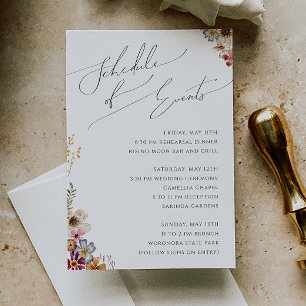 Schedule
of
Events
FRIDAY, MAY 11TH
6:30 PM REHEARSAL DINNER
RISING MOON BAR AND GRILL
SATURDAY, MAY 12TH
3:30 PM WEDDING CEREMONY
CAMELLIA CHAPEL
5 TO 11 PM RECEPTION
BARINGA GARDENS
SUNDAY, MAY 13TH
11 TO 2 PM BRUNCH
WORONORA STATE PARK
(FOLLOW SIGNS ON ENTRY)